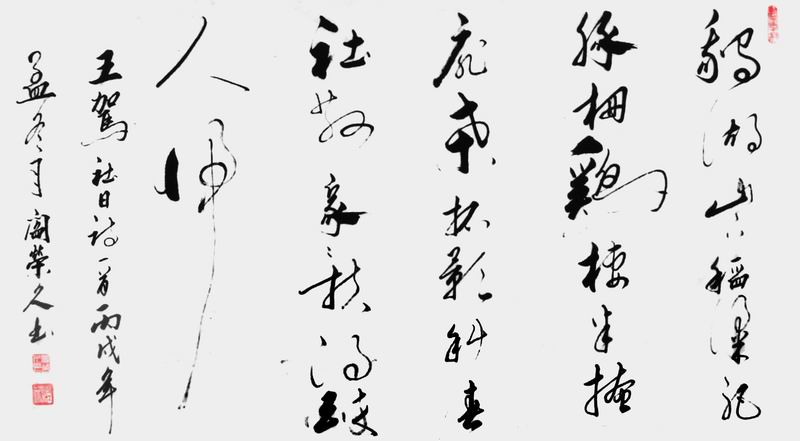 鵝湖山下稻粱肥
豚柵鷄棲半掩
扉桑柘影斜春
社散家々扶得醉
人歸
王駕社日詩一首丙戌年
孟冬月閻榮久書